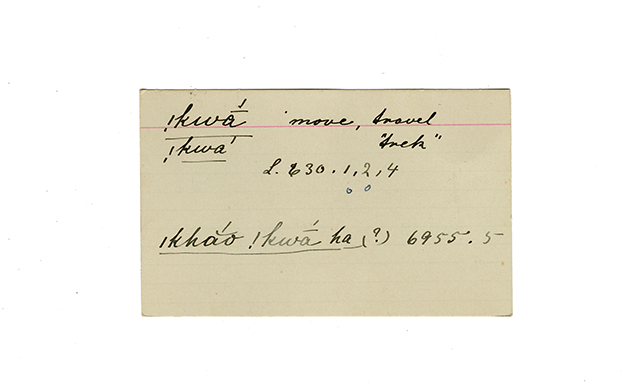 !kwā́ move, travel
!kwa' "trek"
L. 230.1,2,4
o o
!kháo !kwā́ ha (?) 6955.5